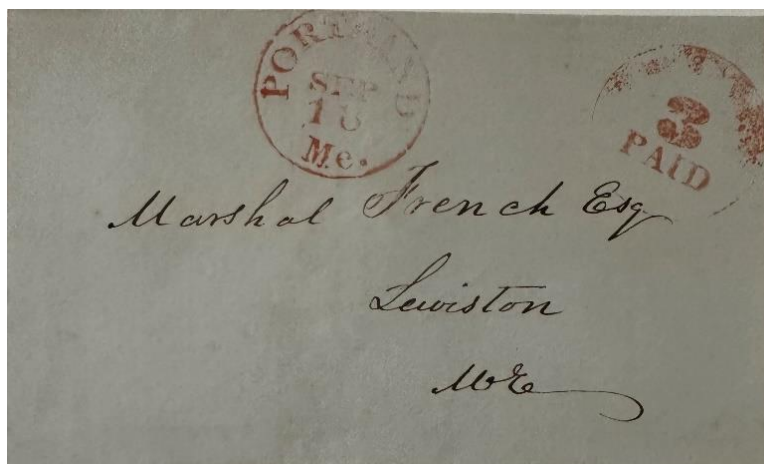 PORTLAND
SEP
Me.
3
PAID
Marshal French Esq
Lewiston
Me